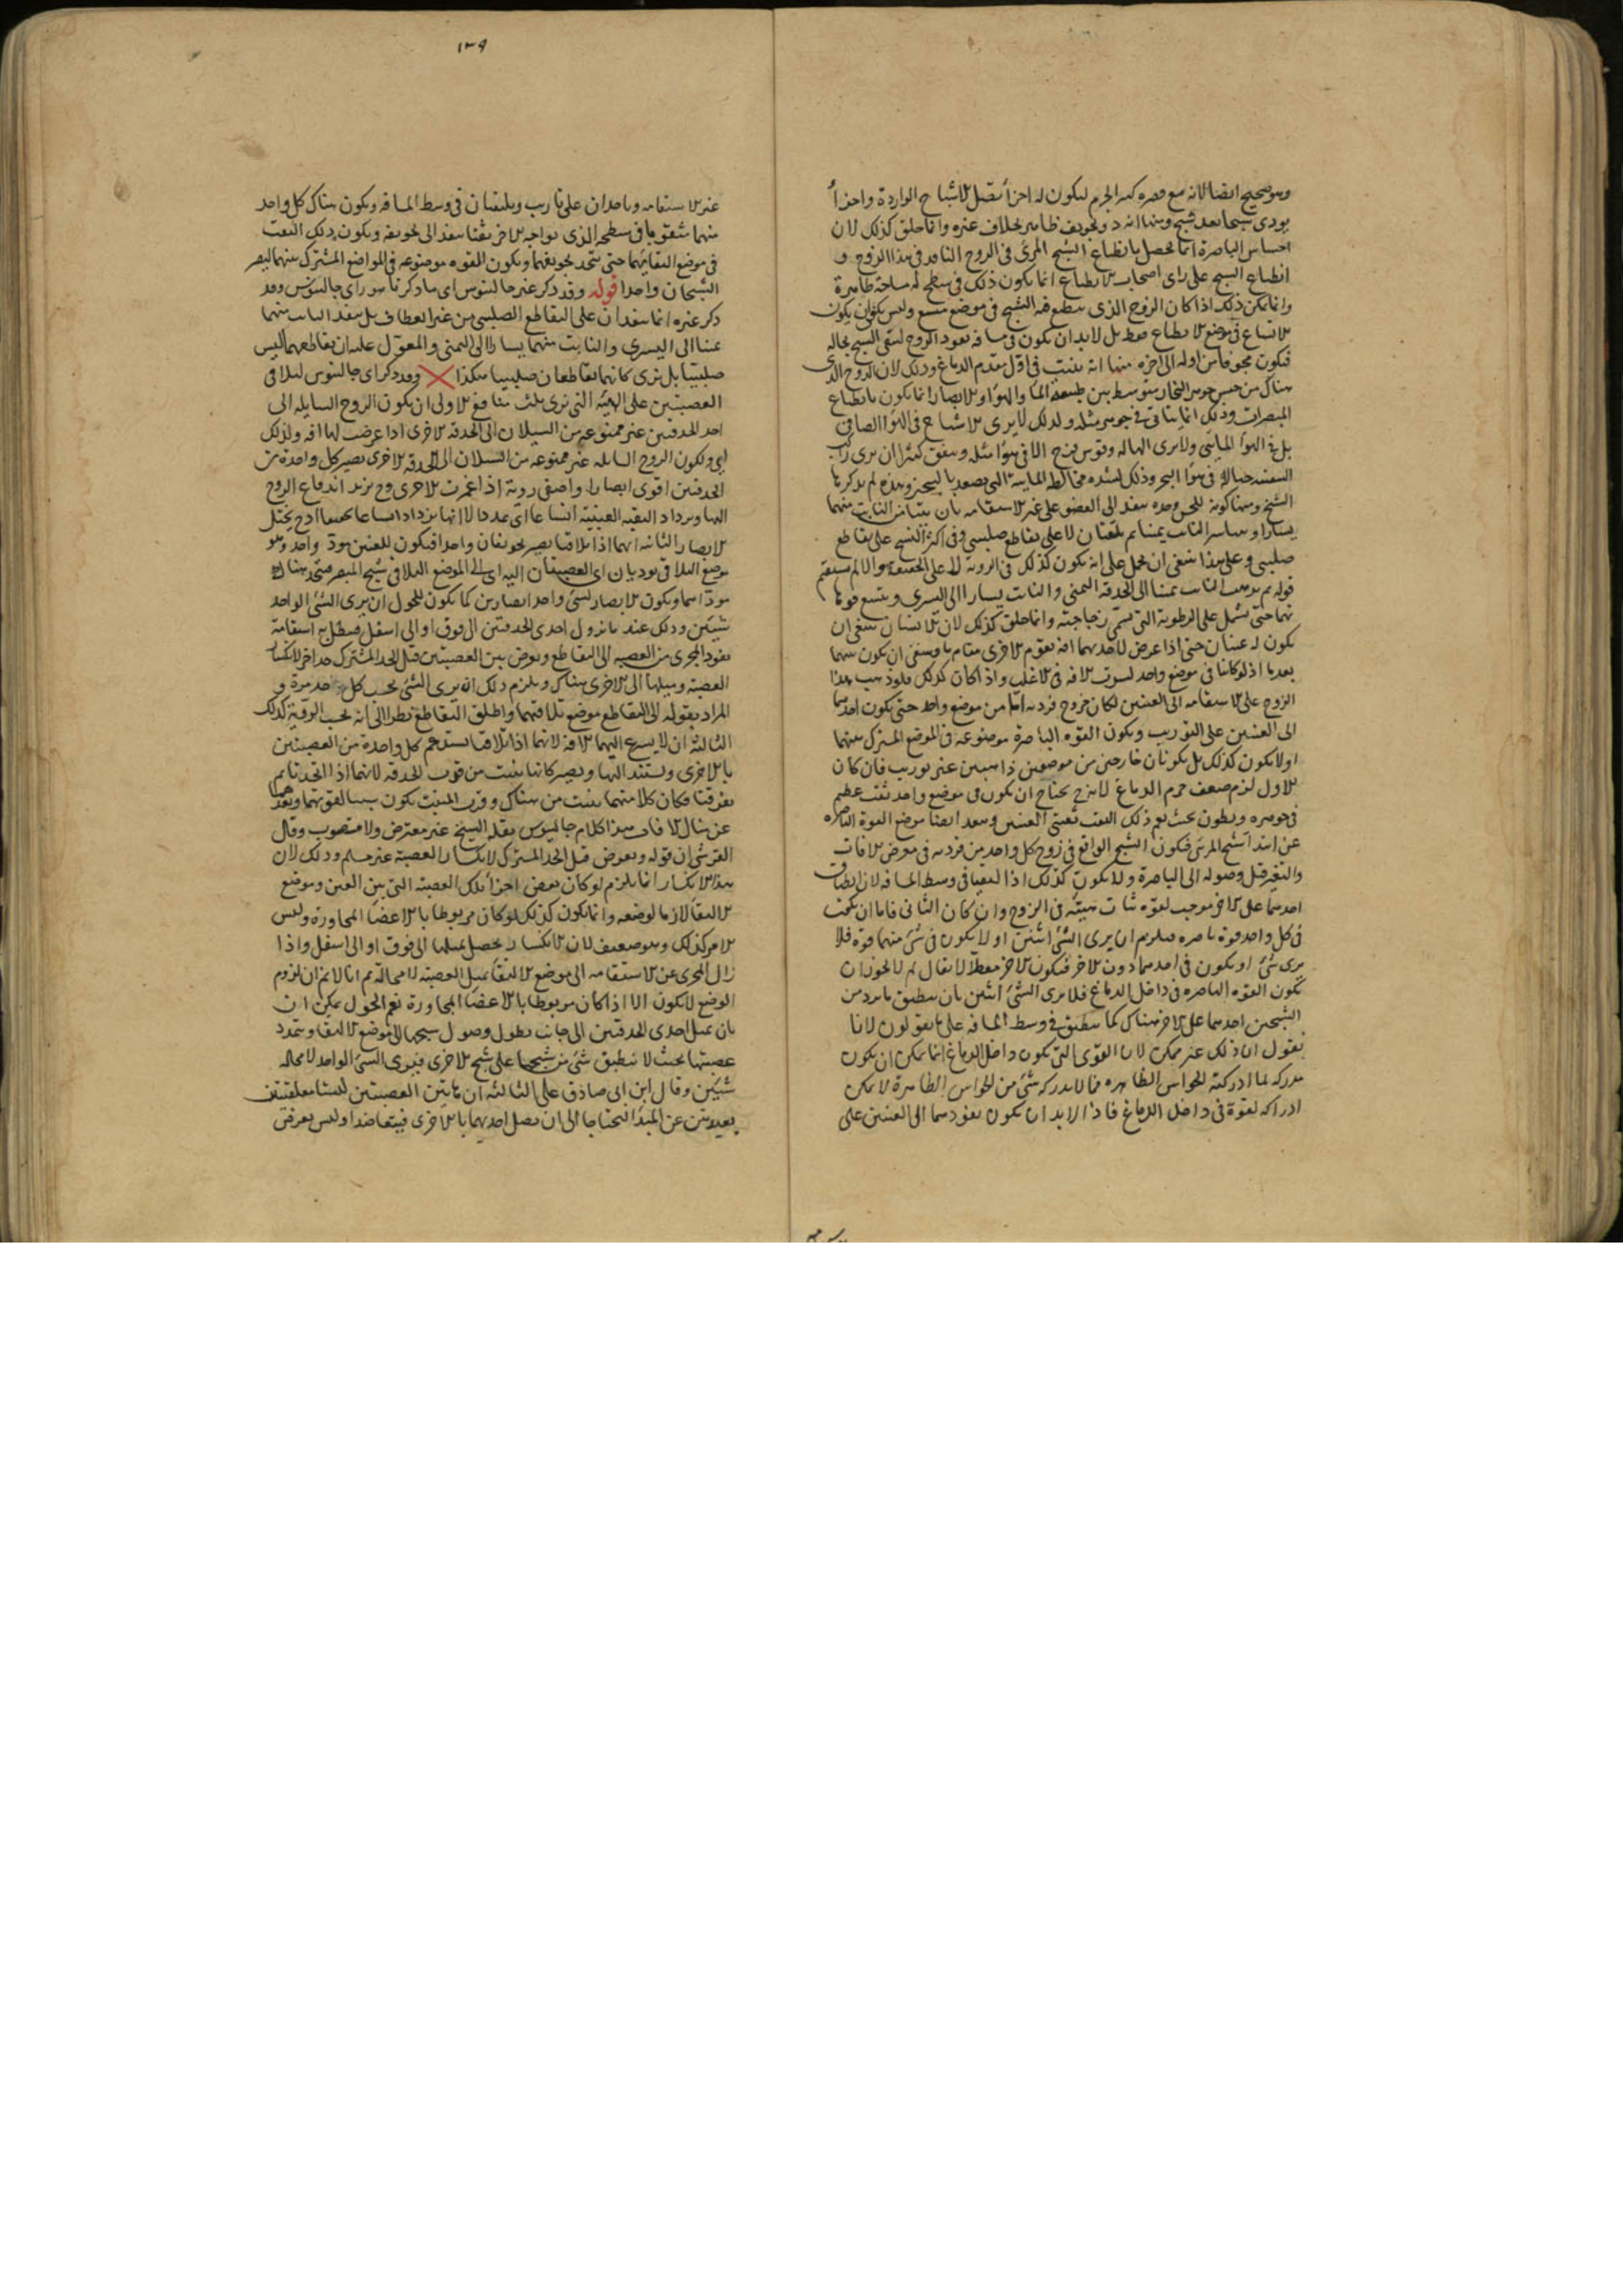 وهو صحيح ايضا لانه مع صغره كبير الجرم ليكون له اجزأ تقبل الاشباح الواردة واحدأ
يودى شبحا بعد شبح ومنها انه ذو تجويف ظاهر بخلاف غيره وانما خلق كذلك لان
احساس الباصرة انما يحصل بانطباع الشبح المرئى فى الروح النافد فى هذا الزوج و
انطباع الشبح على راى اصحاب الانطباع انما يكون ذلك فى سطح له ساحة ظاهرة
وانما يمكن ذلك اذا كان الروح الذى ينطبع فيه الشبح فى موضع متسع وليس يكفى ان يكون
الاتساع فى موضع الانطباع فقط بل لابد ان يكون فى مسافة نفوذ الروح ليبقى الشبح بحاله
فيكون مجوفا من اوله الى اخره منها انه ينبت فى اول مقدم الدماغ وذلك لان الروح الذى
هناك من جنس جوهر البخار متوسط بين طبيعة الماء والهوا والابصار انما يكون بانطباع
المبصرات وذلك انما يتاتى فى جوهر مثله ولذلك لا يرى الاشباح فى الهوا الصافى
بل فى الهوأ المايى ولا يرى الهاله وقوس قزح الا فى هوا مثله ويتفق كثيرا ان يرى راكب
السفينه خيالا فى هوا البحر وذلك لشده مخالطه المايية التى يصعد بالتبخر وهذه لم يذكرها
الشيخ ومنها كونه للجس وحده ينفذ الى العضو على غير الاستقامه بان يتيامن النابت منهما
يسارا ويتياسر النابت يمينا ثم يلتقيان لا على تقاطع صليبى وفى اكثر النسخ على تقاطع
صليبى وعلى هذا ينبغى ان يحمل على انه يكون كذلك فى الروية لا على الحقيقة والا لم يستقم
قوله ثم يذهب النابت يمينا الى الحدقة اليمنى والنابت يسارا الى اليسرى ويتسع فوها
تهما حتى تشتمل على الرطوبة التى تسمى زجاجية وانما خلق كذلك لان الانسان ينبغى ان
يكون له عينان حتى اذا عرض لاحديهما افه تقوم الاخرى مقامها وينبغى ان يكون بينهما
بعد ما اذ لو كانتا فى موضع واحد لسرت الافه فى الاغلب واذا كان كذلك فلو ذهب هذا
الزوج على الاستقامه الى العينين لكان خروج فرديه اما من موضع واحد حتى يكون احدهما
الى العينين على التوريب ويكون القوه الباصرة موضوعه فى الموضع المشترك بينهما
او لا يكون كذلك بل يكونان خارجين من موضعين ذاهبين غير توريب فان كان
الاول لزم ضعف جرم الدماغ لانه ح يحتاج ان يكون فى موضع واحد ثقب عظيم
فى جوهره وبطون بحيث يعم ذلك الثقب ثقبتى العينين وبعد ايضا موضع القوة الباصره
عن ابتدا شبح المرئى فيكون الشبح الواقع فى زوج كل واحد من فرديه فى معرض الافات
والتغير قبل وصوله الى الباصرة ولا يكون كذلك اذا التقيا فى وسط المسافه لان انطباق
احدهما على الاخر موجب لقوه ثبات هيئته فى الروح وان كان الثانى فاما ان يكون
فى كل واحد قوة باصره فيلزم ان يرى الشئ اثنين او لا يكون فى شئ منهما قوة فلا
يرى شئ او يكون فى احدهما دون الاخر فيكون الاخر معطلا لا يقال لم لا يجوز ان
تكون القوه الباصره فى داخل الدماغ فلا يرى الشئ اثنين بان ينطبق ما يرد من
الشبحين احدهما على الاخر هناك كما ينطبق فى وسط المسافه على ما يقولون لانا
نقول ان ذلك غير ممكن لان القوى التى يكون داخل الدماغ انما يمكن ان يكون
مدركه لما ادركته الحواس الظاهره فما لا يدركه شئ من الحواس الظاهرة لا يمكن
ادراكه لقوة فى داخل الدماغ فاذا لابد ان يكون نفوذهما الى العينين على
١٣٩
غير الاستقامه وياخذان على تاريب ويلتقيان فى وسط المسافه ويكون هناك كل واحد
منهما مثقوبا فى سطحه الذى يواجه الاخر ثقبا ينفذ الى تجويفه ويكون ذلك الثقب
فى موضع التقايهما حتى يتحد تجويفهما ويكون القوه موضوعه فى المواضع المشترك بينهما ليصير
الشبحان واحدا قوله وقد ذكر غير جالينوس اى ما ذكرناه هو راى جالينوس وقد
ذكر غيره انما ينفذان على التقاطع الصليبى من غير انعطاف بل ينفذ النابت منهما
يمينا الى اليسرى والنابت منهما يسارا الى اليمنى والمعول عليه ان تقاطعهما ليس
صليبيا بل يرى كانهما يتقاطعان صليبيا هكذا وقد ذكر اى جالينوس لتلاقى
العصبتين على الهيئه التى ترى ثلث منافع الاولى ان يكون الروح السايله الى
احد الحدقتين غير ممنوعه من السيلان الى الحدقه الاخرى اذا عرضت لها افه ولذلك
اى ولكون الروح السايله غير ممنوعه من السيلان الى الحدقه الاخرى يصير كل واحدة من
الحدقتين اقوى ابصارا واصفى روية اذا غمزت الاخرى وح يزيد اندفاع الروح
اليها ويزداد الثقبه العينية اتساعا اى عددا لا انها يزداد اتساعا حقيقيا اذ ح يختل
الابصار الثانيه انهما اذا تلاقتا يصير تجويفان واحدا فيكون للعينين مودى واحد وهو
موضع التلاقى يوديان اى العصبتان اليه اى الى الموضع التلاقى شبح المبصر فيتحد هناك
مودّاهما ويكون الابصار لشئ واحد ابصارين كما يكون للحول ان يرى الشئ الواحد
شيئين وذلك عند ما تزول احدى الحدقتين الى فوق او الى اسفل فيبطل به استقامة
نفوذ المجرى من العصبه الى التقاطع ويعرض بين العصبتين قبل الحد المشترك حد اخر لانكسار
العصبة وميلها الى الاخرى هناك ويلزم ذلك انه يرى الشئ بحسب كل حد مرة و
المراد بقوله الى التقاطع موضع تلاقيهما واطلق التقاطع نظرا الى انه بحسب الروية كذلك
الثالثه ان لا يسرع اليهما الافه لانهما اذا تلاقتا يستدعم كل واحدة من العصبتين
بالاخرى ويستند اليها ويصير كانها ينبت من قرب الحدقه لانهما اذا اتحدتا ثم
تفرقتا فكان كلا منهما ينبت من هناك وقرب المنبت يكون سببا لقوتهما وبعدهما
عن منال الافات هذا كلام جالينوس نقله الشيخ غير معترض ولا مصوب وقال
القرشى ان قوله ويعرض قبل الحد المشترك لانكسار العصبة غير مسلم وذلك لان
هذا الانكسار انما يلزم لو كان بعض اجزأ تلك العصبة التى بين العين وموضع
الالتقا لازما لوضعه وانما يكون كذلك لو كان مربوطا بالاعضا المجاورة وليس
الامر كذلك وهو ضعيف لان الانكسار يحصل بميلها الى فوق او الى اسفل واذا
زال المجرى عن الاستقامه الى موضع الالتقا بميل العصبة لا محالة ثم انا لا نم ان لزوم
الوضع لا يكون الا اذا كان مربوطا بالاعضا المجاورة نعم الحول يمكن ان
بان يميل احدى الحدقتين الى جانب بطول وصول شبحها الى موضع الالتقا ويتمدد
عصبتها بحيث لا ينطبق شئ من شبحها على شبح الاخرى فيرى الشئ الواحد لا محاله
شيئين وقال ابن ابى صادق على الثالثه ان هاتين العصبتين ليستا معلقتين
بعيدتين عن المبدأ فتحتاجا الى ان يصل احديهما بالاخرى فيتعاضدا وليس بعرض